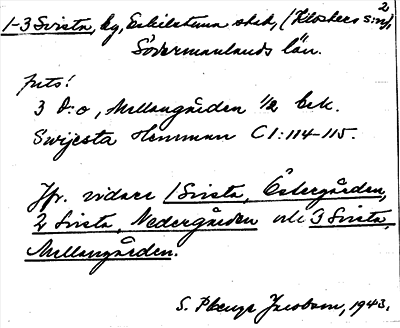 2
1-3 Svista, by, Eskilstuna stad, (Klosters s:n),
Södermanlands län.
Jnts!
3 D:o, Mellangården 1/2 bek.
Swijesta Hemman C1:114-115.
Jfr. vidare 1 Svista, Östergården,
2 Svista, Nedergården och 3 Svista,
Mellangården.
S. Jacobson, 1943.